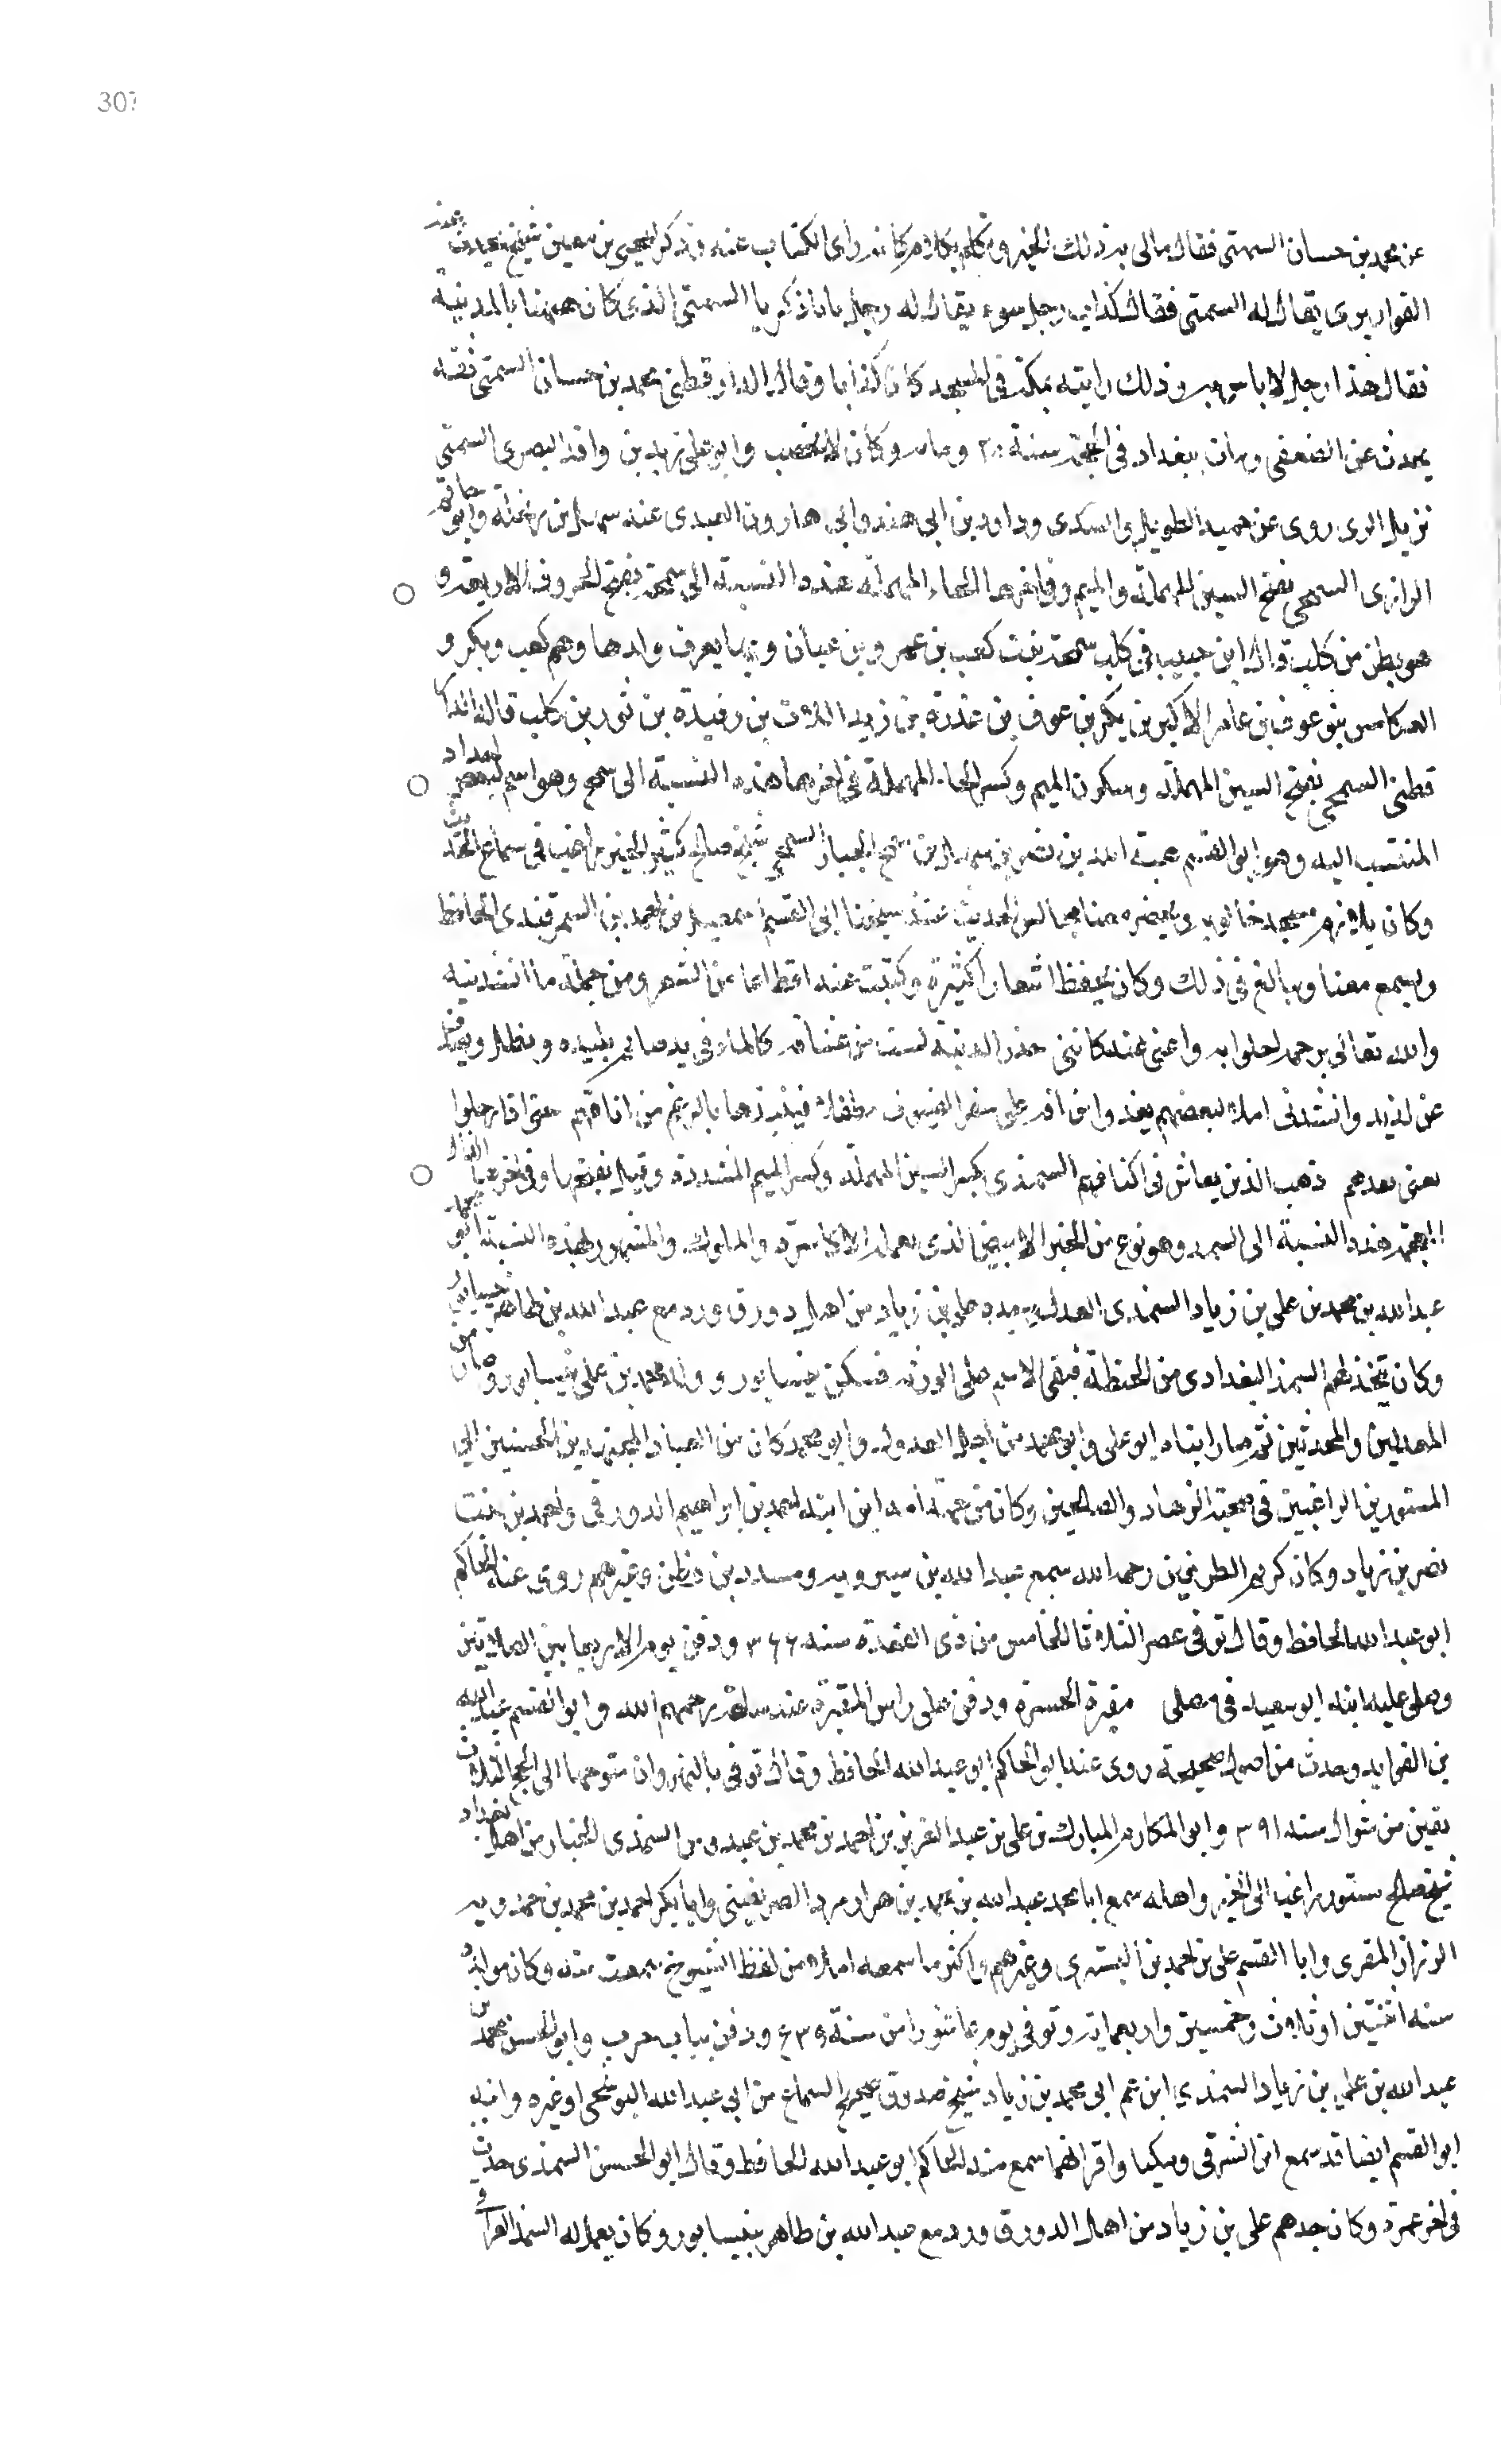 307
عن محمد بن حسان السمتى فقال مالى بذلك الخبر وتكلم بكلام كانه راى الكتاب عنه وذكر ليحيى بن معين شيخ يحدث عند
القواريرى يقال له السمتى فقال كذاب رجل سوء يقال له رجل يابا زكريا السمتى الذى كان ههنا بالمدينة
فقال هذا رجل لا باس به وذلك رايته بمكة فى المسجد كان كذابا وقال الدارقطنى محمد بن حسان السمتى ثقة
يحدث عن الضعفى ومات ببغداد فى الحجة سنة وكان لا يخضب وابو على زيد بن واقد البصرى السمتى
نزيل الرى روى عن حميد الطويل والسدى وداود بن ابى هند وابى هارون العبدى عنه سهل بن زنجلة وابو حاتم
الرازى السمحى بفتح السين المهملة والميم وفى اخرها الحاء المهملة هذه النسبة الى سمحة بفتح الحروف الاربعة و
هو بطن من كلب قال ابن حبيب فى كلب سمحة بنت كعب بن عمرو بن وبها يعرف ولدها وهم كعب وبكر و
العكامس بنو عوف بن عامر الاكبر بن بكر بن عوف بن عذرة بن زيد اللات بن رفيدة بن ثور بن كلب قاله الدار
قطنى السمحى بفتح السين المهملة وسكون الميم وكسر الحاء المهملة فى اخرها هذه النسبة الى سمح وهو اسم لبعض اجداد
المنتسب اليه وهو ابو القسم هبة الله بن نصر بن سهل بن سمح الخباز السمحى شيخ صالح كثير الخير راغب فى سماع الحديث
وكان يلازم مسجد ويحضر معنا مجالس الحديث عند شيخنا ابى القسم اسمعيل بن احمد بن السمرقندى الحافظ
ويسمع معنا ويبالغ فى ذلك وكان يحفظ اشعارا كثيرة وكتبت عنه اقطاعا من الشعر ومن جملة ما انشدنيه
والله تعالى يرحمه لحلوا به واعنى عنه كاننى حذر الدنية لست من عشاقه كالماء فى يد صايم يلتذه
عن لذيذ وانشدنى املاء لبعضهم
يعنى بعدهم ذهب الذين يعاش فى اكنافهم السمذى بكسر السين المهملة وكسر الميم المشددة وقيل بفتحها وفى اخرها الذال
المعجمة هذه النسبة الى السمد وهو نوع من الخبز الابيض الذى يعمله الاكاسرة والملوك والمشهور بهذه النسبة ابو محمد
عبد الله بن محمد بن على بن زياد السمذى العدل جده على بن زياد من اهل دورق ورد مع عبد الله بن طاهر نيسابور
وكان يتخذ لهم السمذ البغدادى من الحنطة فبقى الاسم على الورثة فسكن نيسابور وولد محمد بن على بنيسابور وصار من
المعدلين والمحدثين ثم صار ابناه ابو على وابو محمد من اجل العدول وابو محمد كان من العباد المجتهدين المحسنين الى
المستورين الراغبين فى صحبة الزهاد والصالحين وكان من امه ابن ابنة احمد بن ابراهيم الدورقى واحمد بن بنت
نصر بن زياد وكان كريم الطرفين رحمه الله سمع عبد الله بن شيرويه ومسدد بن قطن وغيرهم روى عنه الحاكم
ابو عبد الله الحافظ وقال توفى عصر الثلاثا الخامس من ذى القعدة سنة ٣٦٦ ودفن يوم الاربعا بين الصلاتين
وصلى عليه ابنه ابو سعيد فى مصلى مقبرة الحسرة ودفن على راس المقبرة عند سلفه رحمهم الله وابو القسم عبد الله
بن الفوايد وحدث من اصول صحيحة روى عنه ابو الحاكم ابو عبد الله الحافظ وقال توفى بالنهروان متوجها الى الحج لثلاث
بقين من شوال سنة ٣٩١ وابو المكارم المبارك بن على بن عبد العزيز بن احمد بن محمد بن عبدوس السمذى الخباز من اهل بغداد
شيخ صالح مستور راغب الى الخير واهله سمع ابا محمد عبد الله بن محمد بن هزارمرد الصريفينى وابا بكر احمد بن محمد بن حمدويه
الرزاز المقرى وابا القسم على بن احمد بن البسرى وغيرهم واكثر ما سمعه املاء من لفظ الشيوخ سمعت منه وكان مولده
سنة اثنتين او ثلاث وخمسين واربعماية وتوفى يوم عاشورا من سنة ودفن بباب حرب وابو الحسن محمد بن
عبد الله بن على بن زياد السمذى ابن عم ابى محمد بن زياد شيخ صدوق صحيح السماع من ابى عبد الله البوشنجى وغيره وابنه
ابو القسم ايضا قد سمع ابن الشرقى ومكيا واقرانهما سمع منه الحاكم ابو عبد الله الحافظ وقال ابو الحسن السمذى حدث
فى اخر عمره وكان جدهم على بن زياد من اهل الدورق ورد مع عبد الله بن طاهر بنيسابور وكان يعمل له السمذ